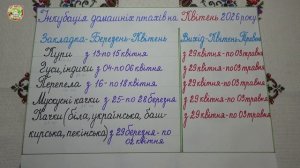 Інкубація домашніх птахів на Квітень 2026 року
Закладка-Березень-Квітень
Вихід-Квітень-Травень
Кури з 13 по 15 квітня
з 29 квітня-по 03 травня
Гуси, індики з 04-по 06 квітня
з 29 квітня-по 03 травня
Перепела з 16-по 18 квітня
з 29 квітня-по 03 травня
Мускусні качки з 25-по 28 березня
з 29 квітня-по 03 травня
Качки (біла, українська, баш-
з 29 квітня-по 03 травня
кирська, пекінська) з 29 березня-по
02 квітня